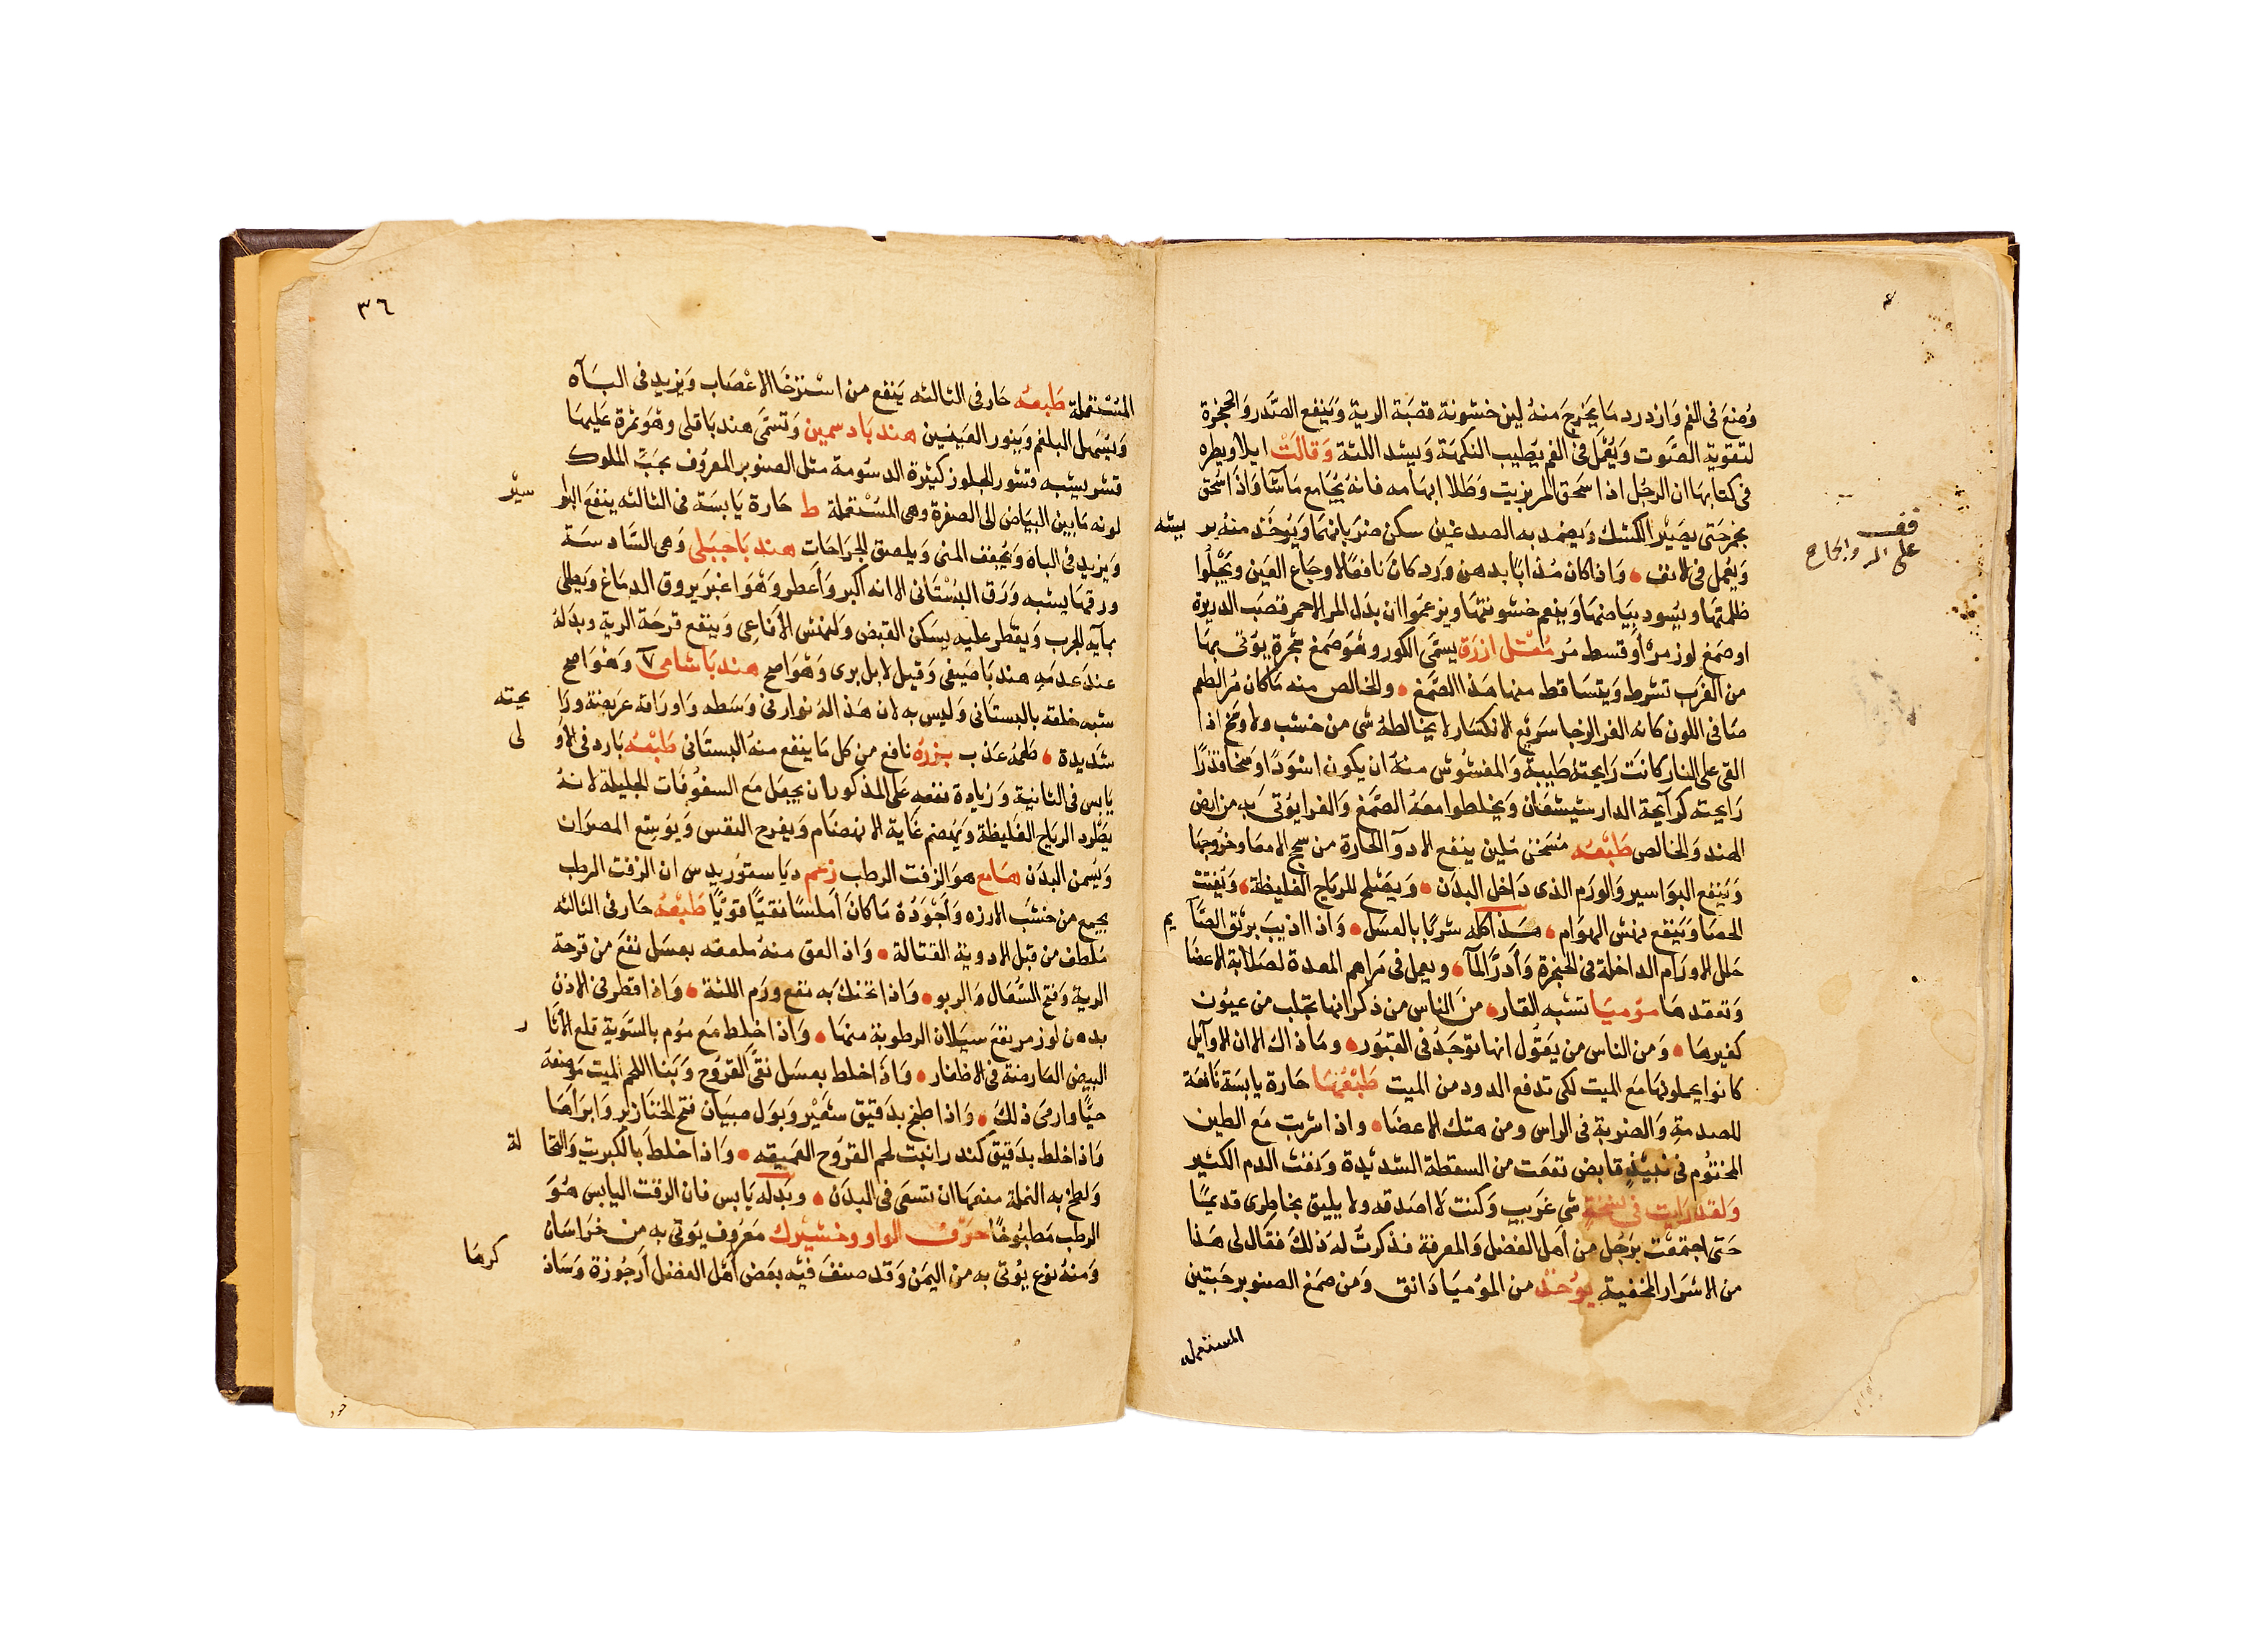 وُضِعَ فى الفم وَازدرد مَا يَخرج مَنهُ لين خشونة قصَبَة الرية وَينفع الصَّدر وَالحنجرة
لتقوية الصَّوت وَيُعْمَل فى الفم يَطيب النكهَة وَيشد اللثة وَقالَتْ ايلاويطره
فى كتابهَا ان الرجُل اذا سَحق المر بزيت وَطلا ابهَامه فانهُ يُجَامع مَا شَآ وَاذا سُحق
بخمر حَتى يصَيْر كالكشك وَيضمد به الصدغين سكن ضربَانهمَا وَيُوخَذ منهُ
وَيعُمل فى الانف وَاذا كان مُذابًا بدهن وَرد كانَ نافعًا لاوجَاع العَين وَيجْلُوا
ظلمتهَا وَيسُود بيَاضهَا وَينعم خشونتهَا ويزعمَوا ان بدَل المر الاحمر قصَب الدريرة
او صَمغ لوز مره أَو قسط مُر مُقْتل ازرَق يسمَّى الكور وهوَ صَمغ شجْرة يؤتى بهَا
من الغرَب تشرط وَيتسَاقط منهَا هَذا الصَّمغ والخالص منه مَا كان مُر الطعم
صَافى اللون كانه الغرا لا يخالطهُ شى من خشب ولا وسَخ اذا
القى على النار كانت رَايحتهُ طَيبة وَالمغشوش منهُ ان يكون اسْوَدًا وَسَخا قذرًا
رَايحته كرآيحة الدارشيشعَان وَيخلطوا معَهُ الصَّمَغ وَالغرا يؤتى بهِ من ارض
الهند وَالخالص طَبْعُه مُسَخن مُلين ينفع الادوآ الحارة من سحج الامعَا وخُروجهَا
وَيَنفع البوَاسير وَالورَم الذى دَاخل البدَن وَيصَلح للريَاح الغليظة وَيَفتت
الحصَا وَيَنفع نهش الهوَام هَذا كله شربًا بالعسَل وَاذا اذيبَ بريْق الصَّآيم
حَلل الاورَام الداخلة فى الحنجرة وَأدَرَّ المآ ويعمل فى مَراهم المعدة لصَلابة الاعضَا
وَتعقدهَا مؤميَا تشبه القار منَ الناس من ذكر انهَا تجلب من عيُون
كغيرهَا وَمن الناس من يَقُول انهَا توجَدُ فى القبُور ومَا ذاك الا ان الاوآيل
كانوا يحملونهَا مَعَ الميت لكى تدفع الدود من الميت طَبْعُهَا حَارة يابسَة نَافعَة
للصدمةِ وَالضربة فى الراس ومن هتك الاعضَا واذا شربت مَع الطين
المختوُم فى نبيْذٍ قابض نفعَت من السقطة الشديْدة وَنفث الدم الكثير
وَلقد رَايت فى نسْخَة شى غريب وَكنت لَا اصَدقه ولا يليق بخاطرى قديمًا
حَتى اجتمعْت برَجُل من أهل الفضل وَالمعرفة فذكرتُ لهَ ذلكَ فقَال لى هَذا
من الاسْرَار المخفية يؤخذ من المؤميَا دَانق وَمن صَمغ الصنوبر حَبتين
المستعمله
قف
على المر
٣٦
المُسْتعْملة طَبعُه حَار فى الثالثه يَنفع من اسْترْخَا الاعْصَاب وَيزيد فى البَآه
وَيسُهل البلغم وَيَنور العَينين هند بَاد سمين وَتسمَّى هند باقلى وهُو ثمرة عَليهَا
قشر يشبه قشور الجلوز كثيرَة الدسُومة مثل الصنوبر المعرُوف بحَبّ الملوك
لونه مَا بين البيَاض الى الصفرة وهى المُسْتعْملة ط حَارة يَابسَة فى الثالثه ينفع البوَاسيْر
وَيزيد فى الباه وَيُجفف المنى وَيلصق الجرَاحَات هند بَا جبَلى وَهى السَّادسَة
ورقهَا يشبه وَرَق البُسْتَانى الا انه اكبر وَأعطر وَهوَ اغبَر يروق الدمَاغ وَيطلى
بمآيه الجرب وَيقطر عليه يسَكن القبض وَلنهش الأفَاعى وَينفع قرحَة الرية وبدَلهُ
عندَ عدَمهِ هند بَا صَيفى وَقيل لا بل برى وَهوَ اصح هند بَا شامى وَهوَ اصح
شبه خلقه بالبستَانى وَليس به لان هَذا لهُ نوار فى وَسَطه وَاورَاقهُ عَريضة ورَايحته
شَديدة طَعمُهُ عَذب بزرهُ نافع من كل مَا ينفع منهُ البستَانى طَبْعُه بَارد فى الاولى
يَابس فى الثانية وَزيادة نفعهِ عَلى المذكور ان يجعَل مَع السفوُفَات الجليلة لانهُ
يَطْرُد الريَاح الغَليظة وَيُهضم غَاية الانهضَام وَيفرح النفس وَيوَسع المصرَان
وَيُسمن البدَن هَامع هوَ الزفت الرطب زعَم ديَاسقوريدس ان الزفت الرطب
يجمع من خشبَ الارزه وَأجْوَدُهُ مَا كانَ اَملسًا نقيًّا قويًّا طَبْعُهُ حَار فى الثالثه
مَلطف من قبل الادوية القتالة وَاذا لعق منهُ ملعقه بعسَل نفعَ من قرحة
الرية وَفتح السُّعَال وَالربو وَاذا تحنكَ به نفع ورَم اللثة وَاذا قطر فى الاذن
بدهن لوز مر نفعَ سيَلان الرطوبة منهَا وَاذا خلط مَع مُوم بالسَّوَية قلع الآثار
البيض العارضة فى الاظفار وَاذا خلط بعسَل نقَّى القروُح وَبَنا اللحم الميت مَوضِعُهُ
حَيًّا وارمىَ ذلكَ وَاذا طبخ بدَقيق شعَيْر وَبوَل صبيَان فتح الخنَازير وَابرَاهَا
وَاذا خلط بدَقيق كندر انبت لحم القرُوَح العَميقه وَاذا خلط بَالكبريت وَالنخالة
وَلطخ به النملة منعهَا ان تسعَى فى البدَن وبدَله يَابس فان الزفت اليابس هُوَ
الرطب مَطبُوخًا حَرْف الواو وخشيْرك مَعَروف يَؤتى به من خرَاسَان
وَمنهُ نوع يُؤتى به من اليمَن وَقد صنفَ فيْه بعَض أهْل الفضل أرجُوزة وَسَاذكرهَا